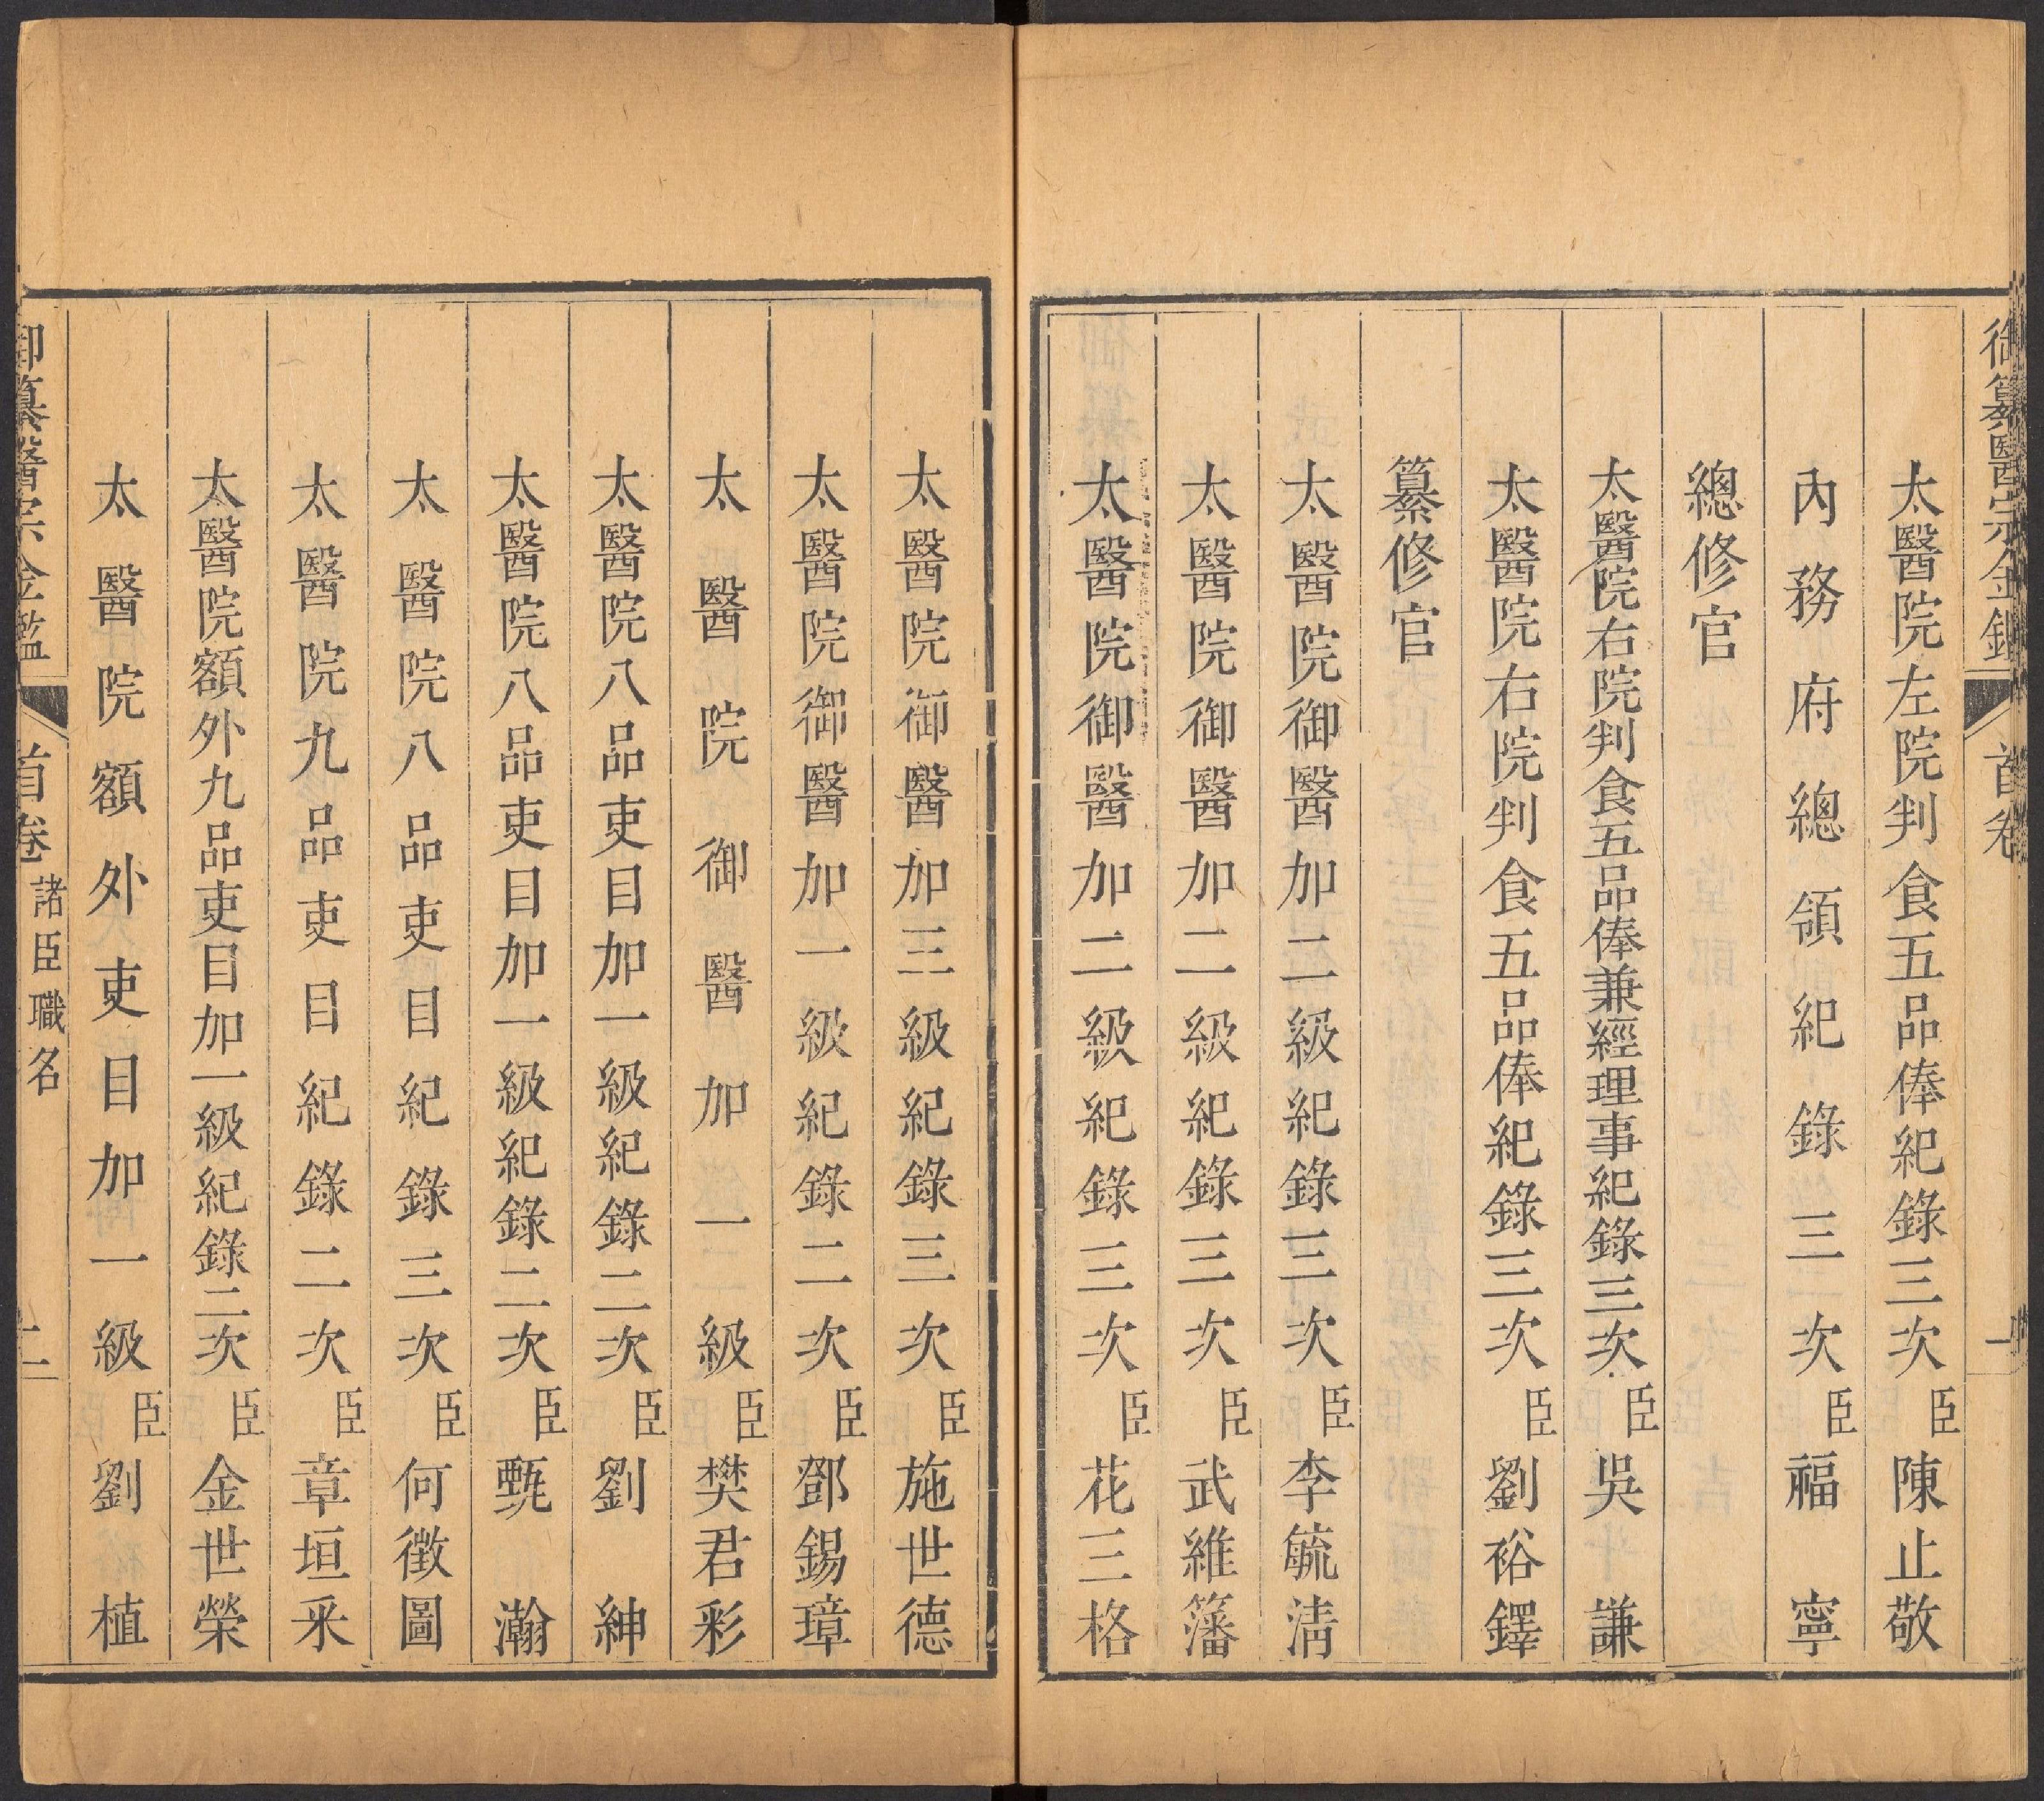 御纂醫宗金鑑 首卷 一
太醫院左院判食五品俸紀錄三次臣陳止敬
內務府總領紀錄三次臣福寧
總修官
太醫院右院判食五品俸兼經理事紀錄三次臣吳謙
太醫院右院判食五品俸紀錄三次臣劉裕鐸
纂修官
太醫院御醫加二級紀錄三次臣李毓淸
太醫院御醫加二級紀錄三次臣武維藩
太醫院御醫加二級紀錄三次臣花三格
太醫院御醫加三級紀錄三次臣施世德
太醫院御醫加一級紀錄二次臣鄧錫璋
太醫院御醫加一級臣樊君彩
太醫院八品吏目加一級紀錄二次臣劉紳
太醫院八品吏目加一級紀錄二次臣甄瀚
太醫院八品吏目紀錄三次臣何徵圖
太醫院九品吏目紀錄二次臣章垣釆
太醫院額外九品吏目加一級紀錄二次臣金世榮
太醫院額外吏目加一級臣劉植
御纂醫宗金鑑 首卷 諸臣職名 二